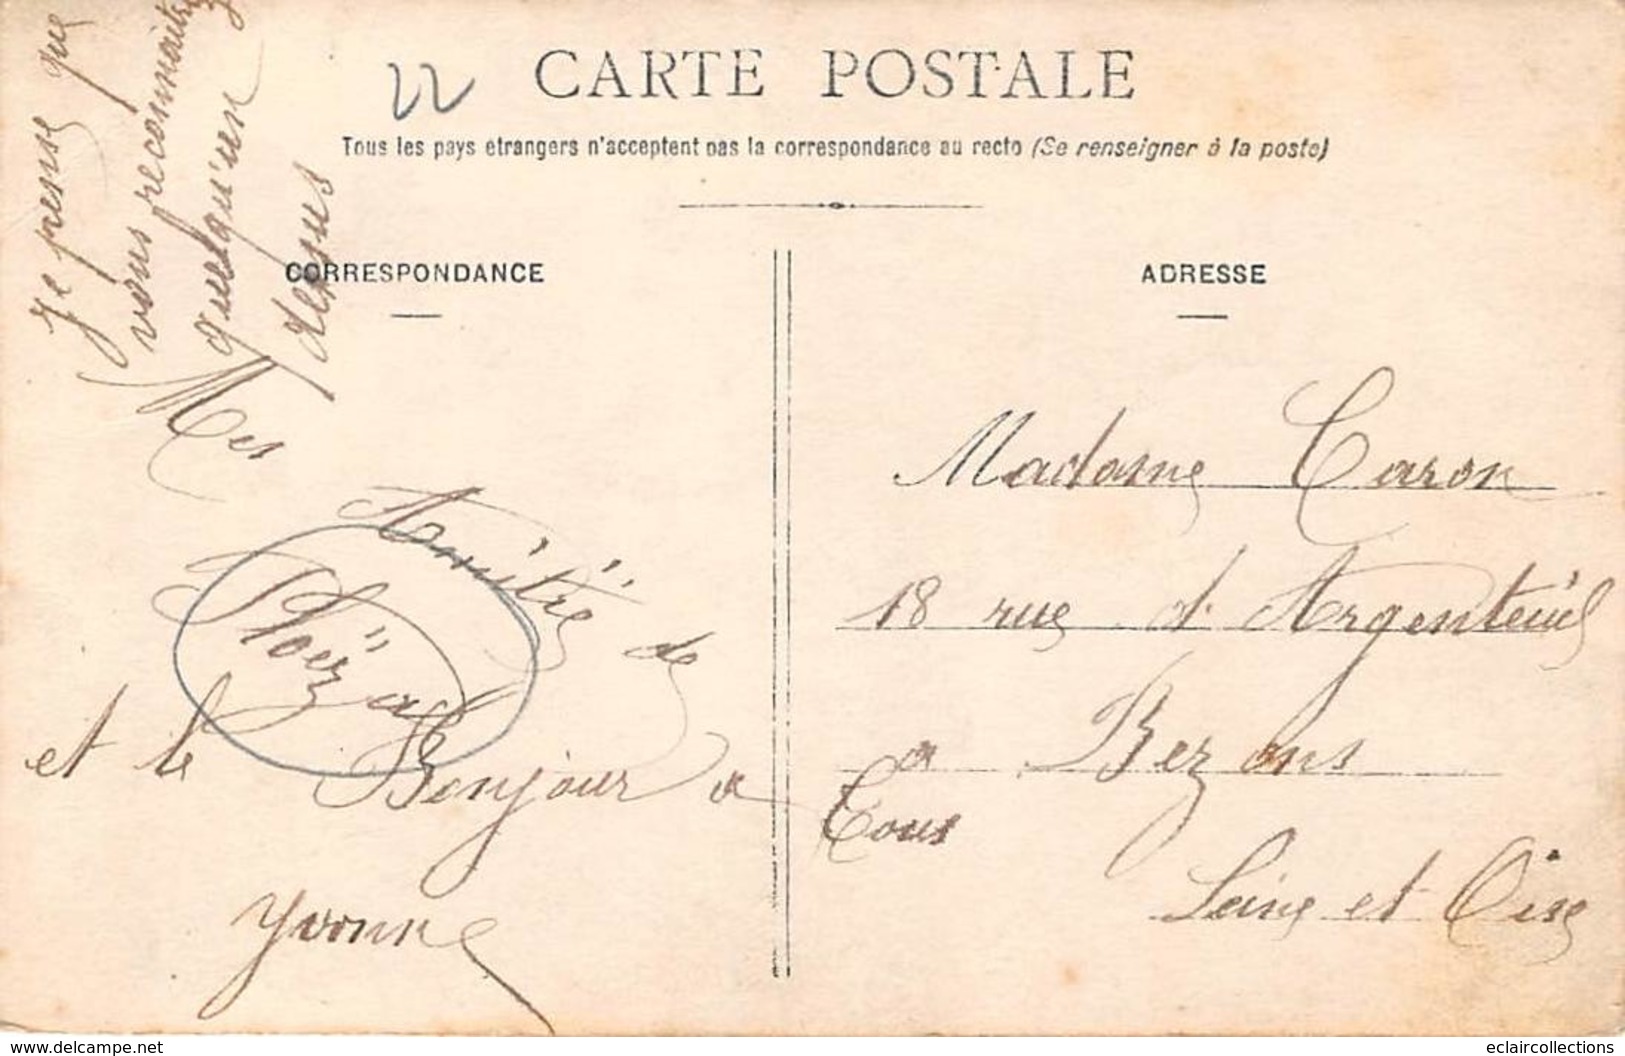 22
CARTE POSTALE
Tous les pays étrangers n'acceptent pas la correspondance au recto (Se renseigner à la poste)
CORRESPONDANCE
ADRESSE
Je pense que
vous reconnaitrez
quelqu'un
dessus
Mes
Amitiés de
et le Bonjour a
Tous
Yvonne
Madame Caron
18 rue d'Argenteuil
a Bezons
Seine et Oise
www.delcampe.net
eclaircollections